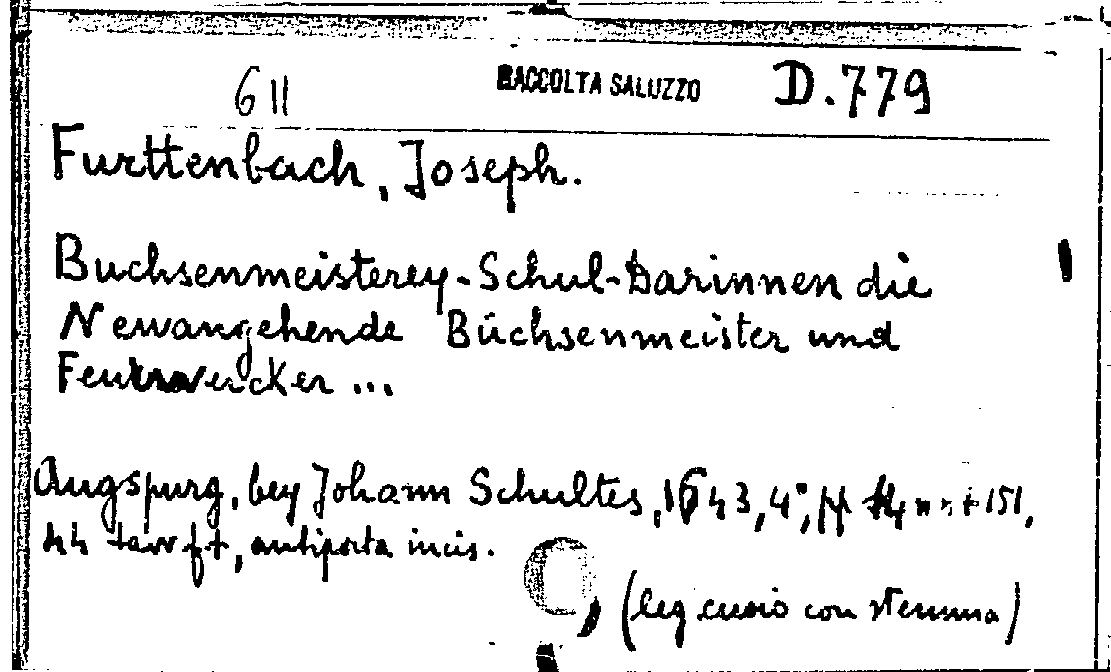 611 RACCOLTA SALUZZO D.779
Furttenbach, Joseph.
Buchsenmeisterey-Schul-Darinnen die
Newangehende Büchsenmeister und
Feurwercker ...
Augspurg, bey Johann Schultes, 1643, 4°, pp + 151,
44 tavv f t, antiporta incis.
(leg cuoio con stemma)